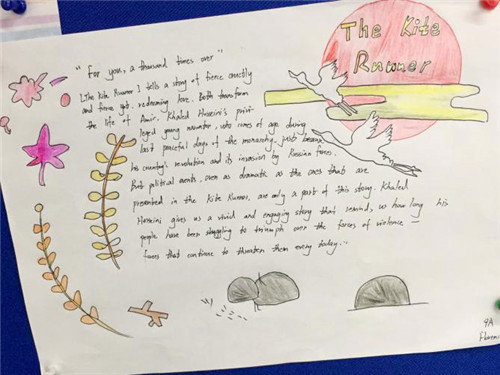 The Kite
Runner
"For you, a thousand times over"
The Kite Runner tells a story of fierce cruelty
and fierce yet redeeming love. Both transform
the life of Amir. Khaled Hosseini's privi-
leged young narrator, who comes of age during
last peaceful days of the monarchy, just before
his country's revolution and its invasion by Russian forces.
But political events, even as dramatic as the ones that are
presented in the Kite Runner, are only a part of this story. Khaled
Hosseini gives us a vivid and engaging story that reminds us how long his
people have been struggling to triumph over the forces of violence —
forces that continue to threaten them every today.
9A